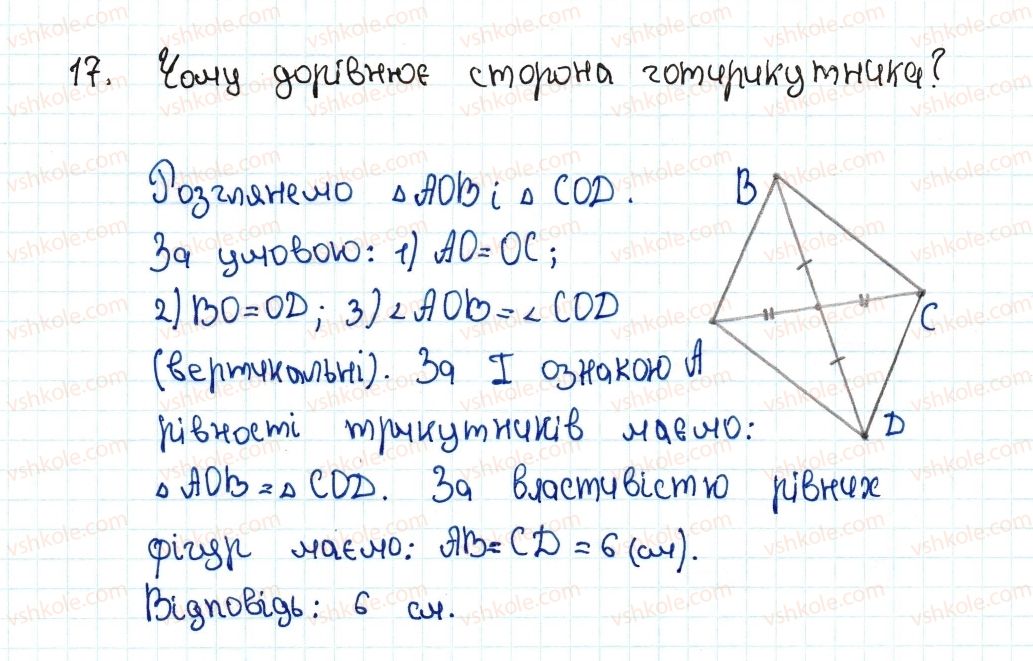 17. Чому дорівнює сторона чотирикутника?
Розглянемо △ AOB і △ COD.
За умовою: 1) AO = OC;
2) BO = OD; 3) ∠ AOB = ∠ COD
(вертикальні). За I ознакою
рівності трикутників маємо:
△ AOB = △ COD. За властивістю рівних
фігур маємо: AB = CD = 6 (см).
Відповідь: 6 см.
B
C
A
D